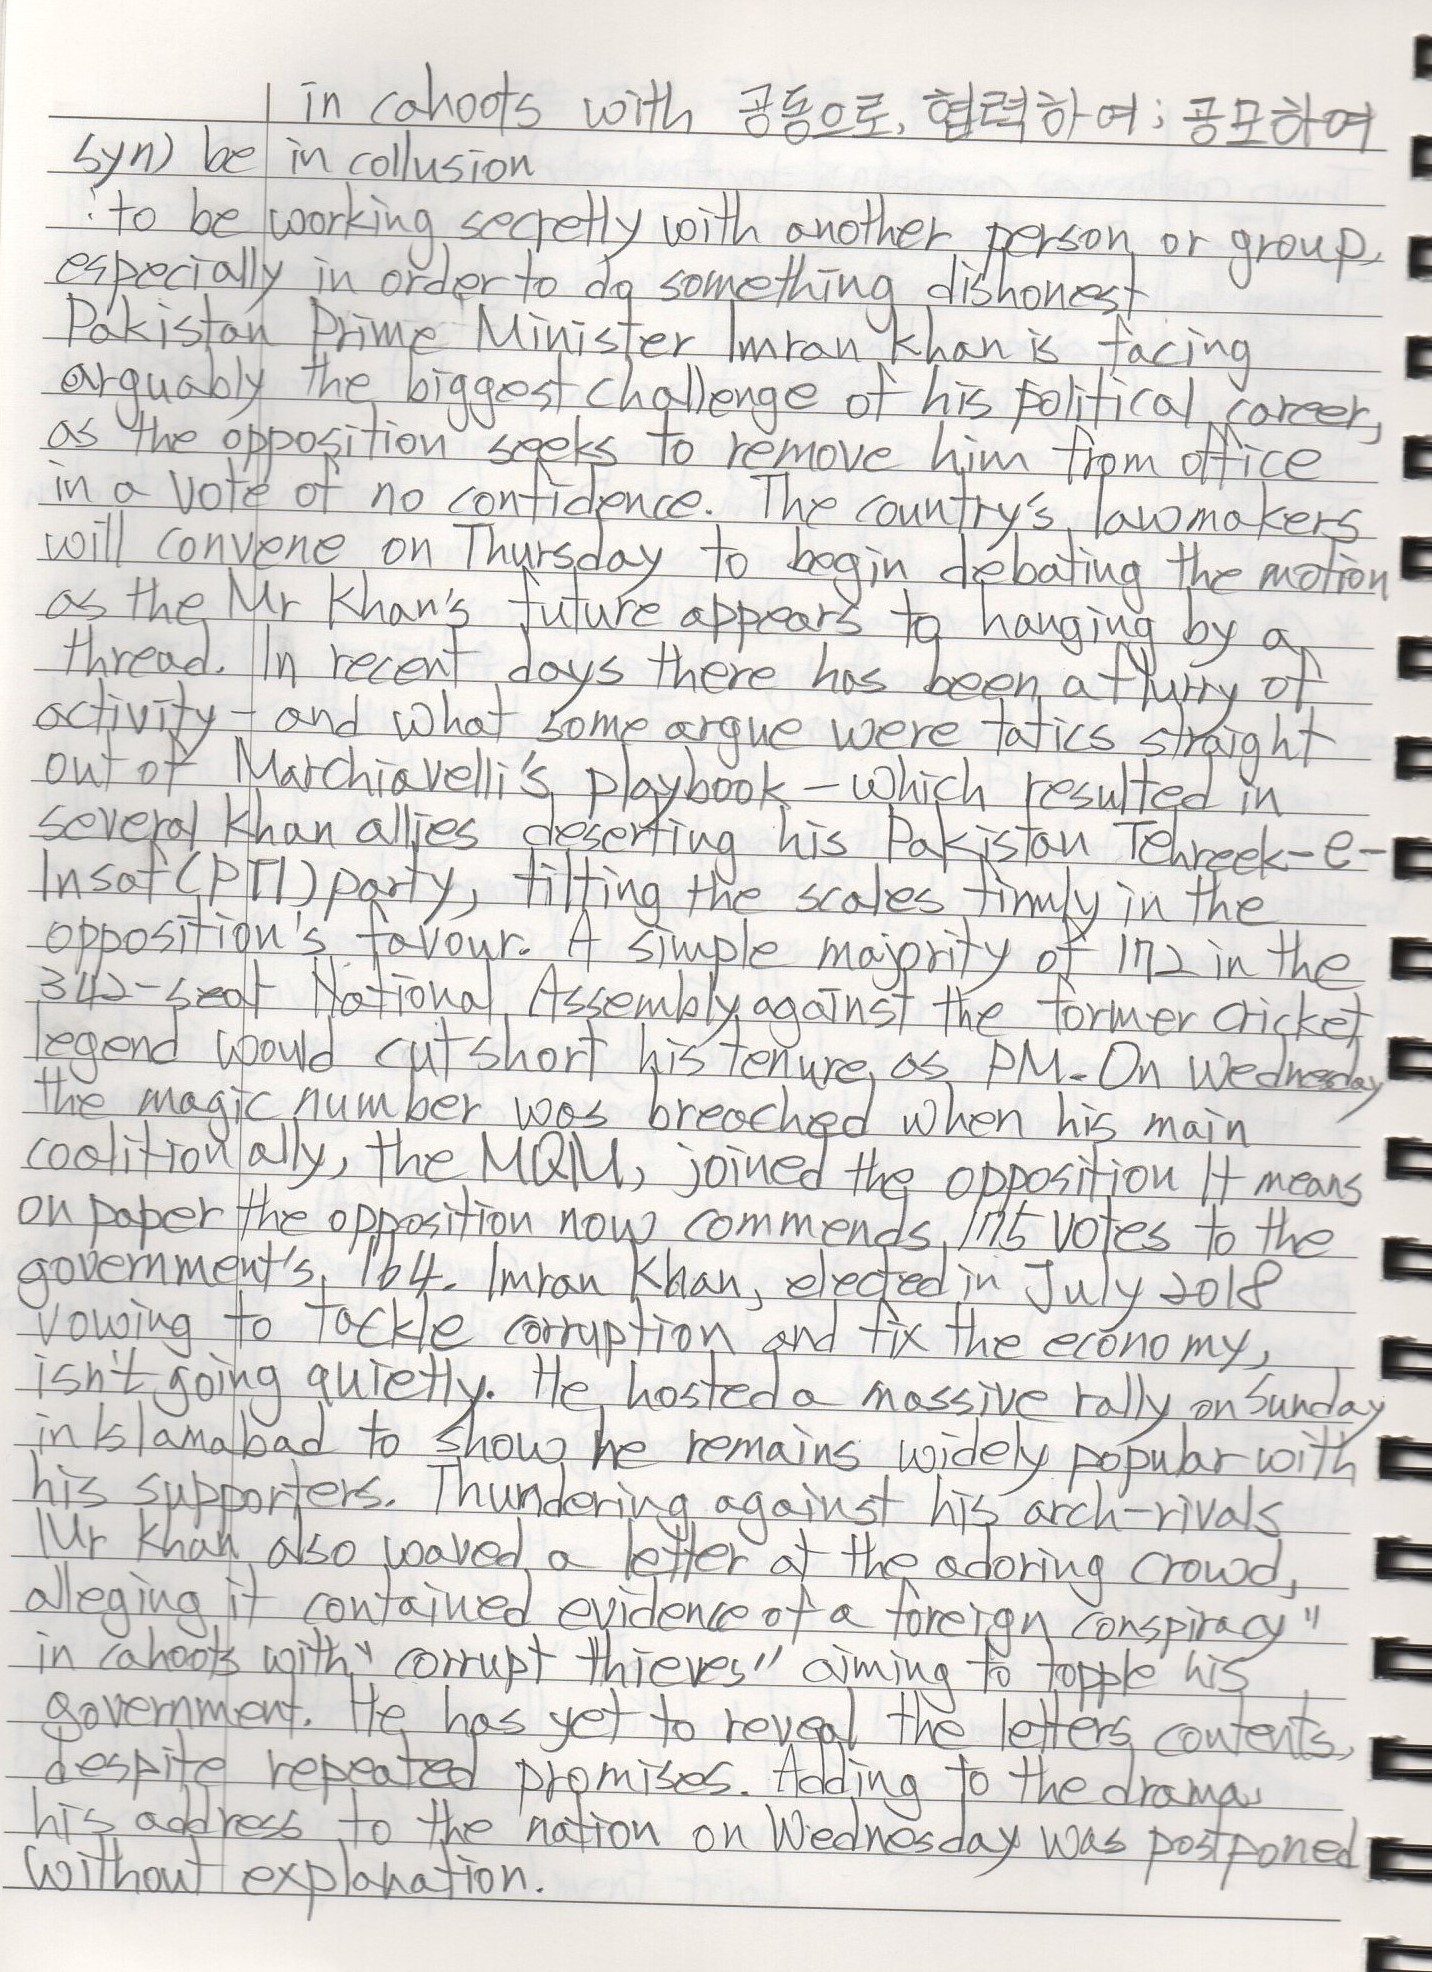 in cahoots with 공동으로, 협력하여; 공모하여
syn) be in collusion
: to be working secretly with another person or group,
especially in order to do something dishonest
Pakistan Prime Minister Imran Khan is facing
arguably the biggest challenge of his political career,
as the opposition seeks to remove him from office
in a vote of no confidence. The country's lawmakers
will convene on Thursday to begin debating the motion
as the Mr Khan's future appears to hanging by a
thread. In recent days there has been a flurry of
activity - and what some argue were tatics straight
out of Marchiavelli's playbook - which resulted in
several Khan allies deserting his Pakistan Tehreek-e-
Insaf (PTI) party, tilting the scales firmly in the
opposition's favour. A simple majority of 172 in the
342-seat National Assembly against the former cricket
legend would cut short his tenure as PM. On Wednesday
the magic number was breached when his main
coalition ally, the MQM, joined the opposition It means
on paper the opposition now commends 175 votes to the
government's 164. Imran Khan, elected in July 2018
vowing to tackle corruption and fix the economy,
isn't going quietly. He hosted a massive rally on Sunday
in Islamabad to show he remains widely popular with
his supporters. Thundering against his arch-rivals
Mr Khan also waved a letter at the adoring crowd,
alleging it contained evidence of a foreign conspiracy"
in cahoots with "corrupt thieves" aiming to topple his
government. He has yet to reveal the letters contents,
despite repeated promises. Adding to the drama,
his address to the nation on Wednesday was postponed
without explanation.